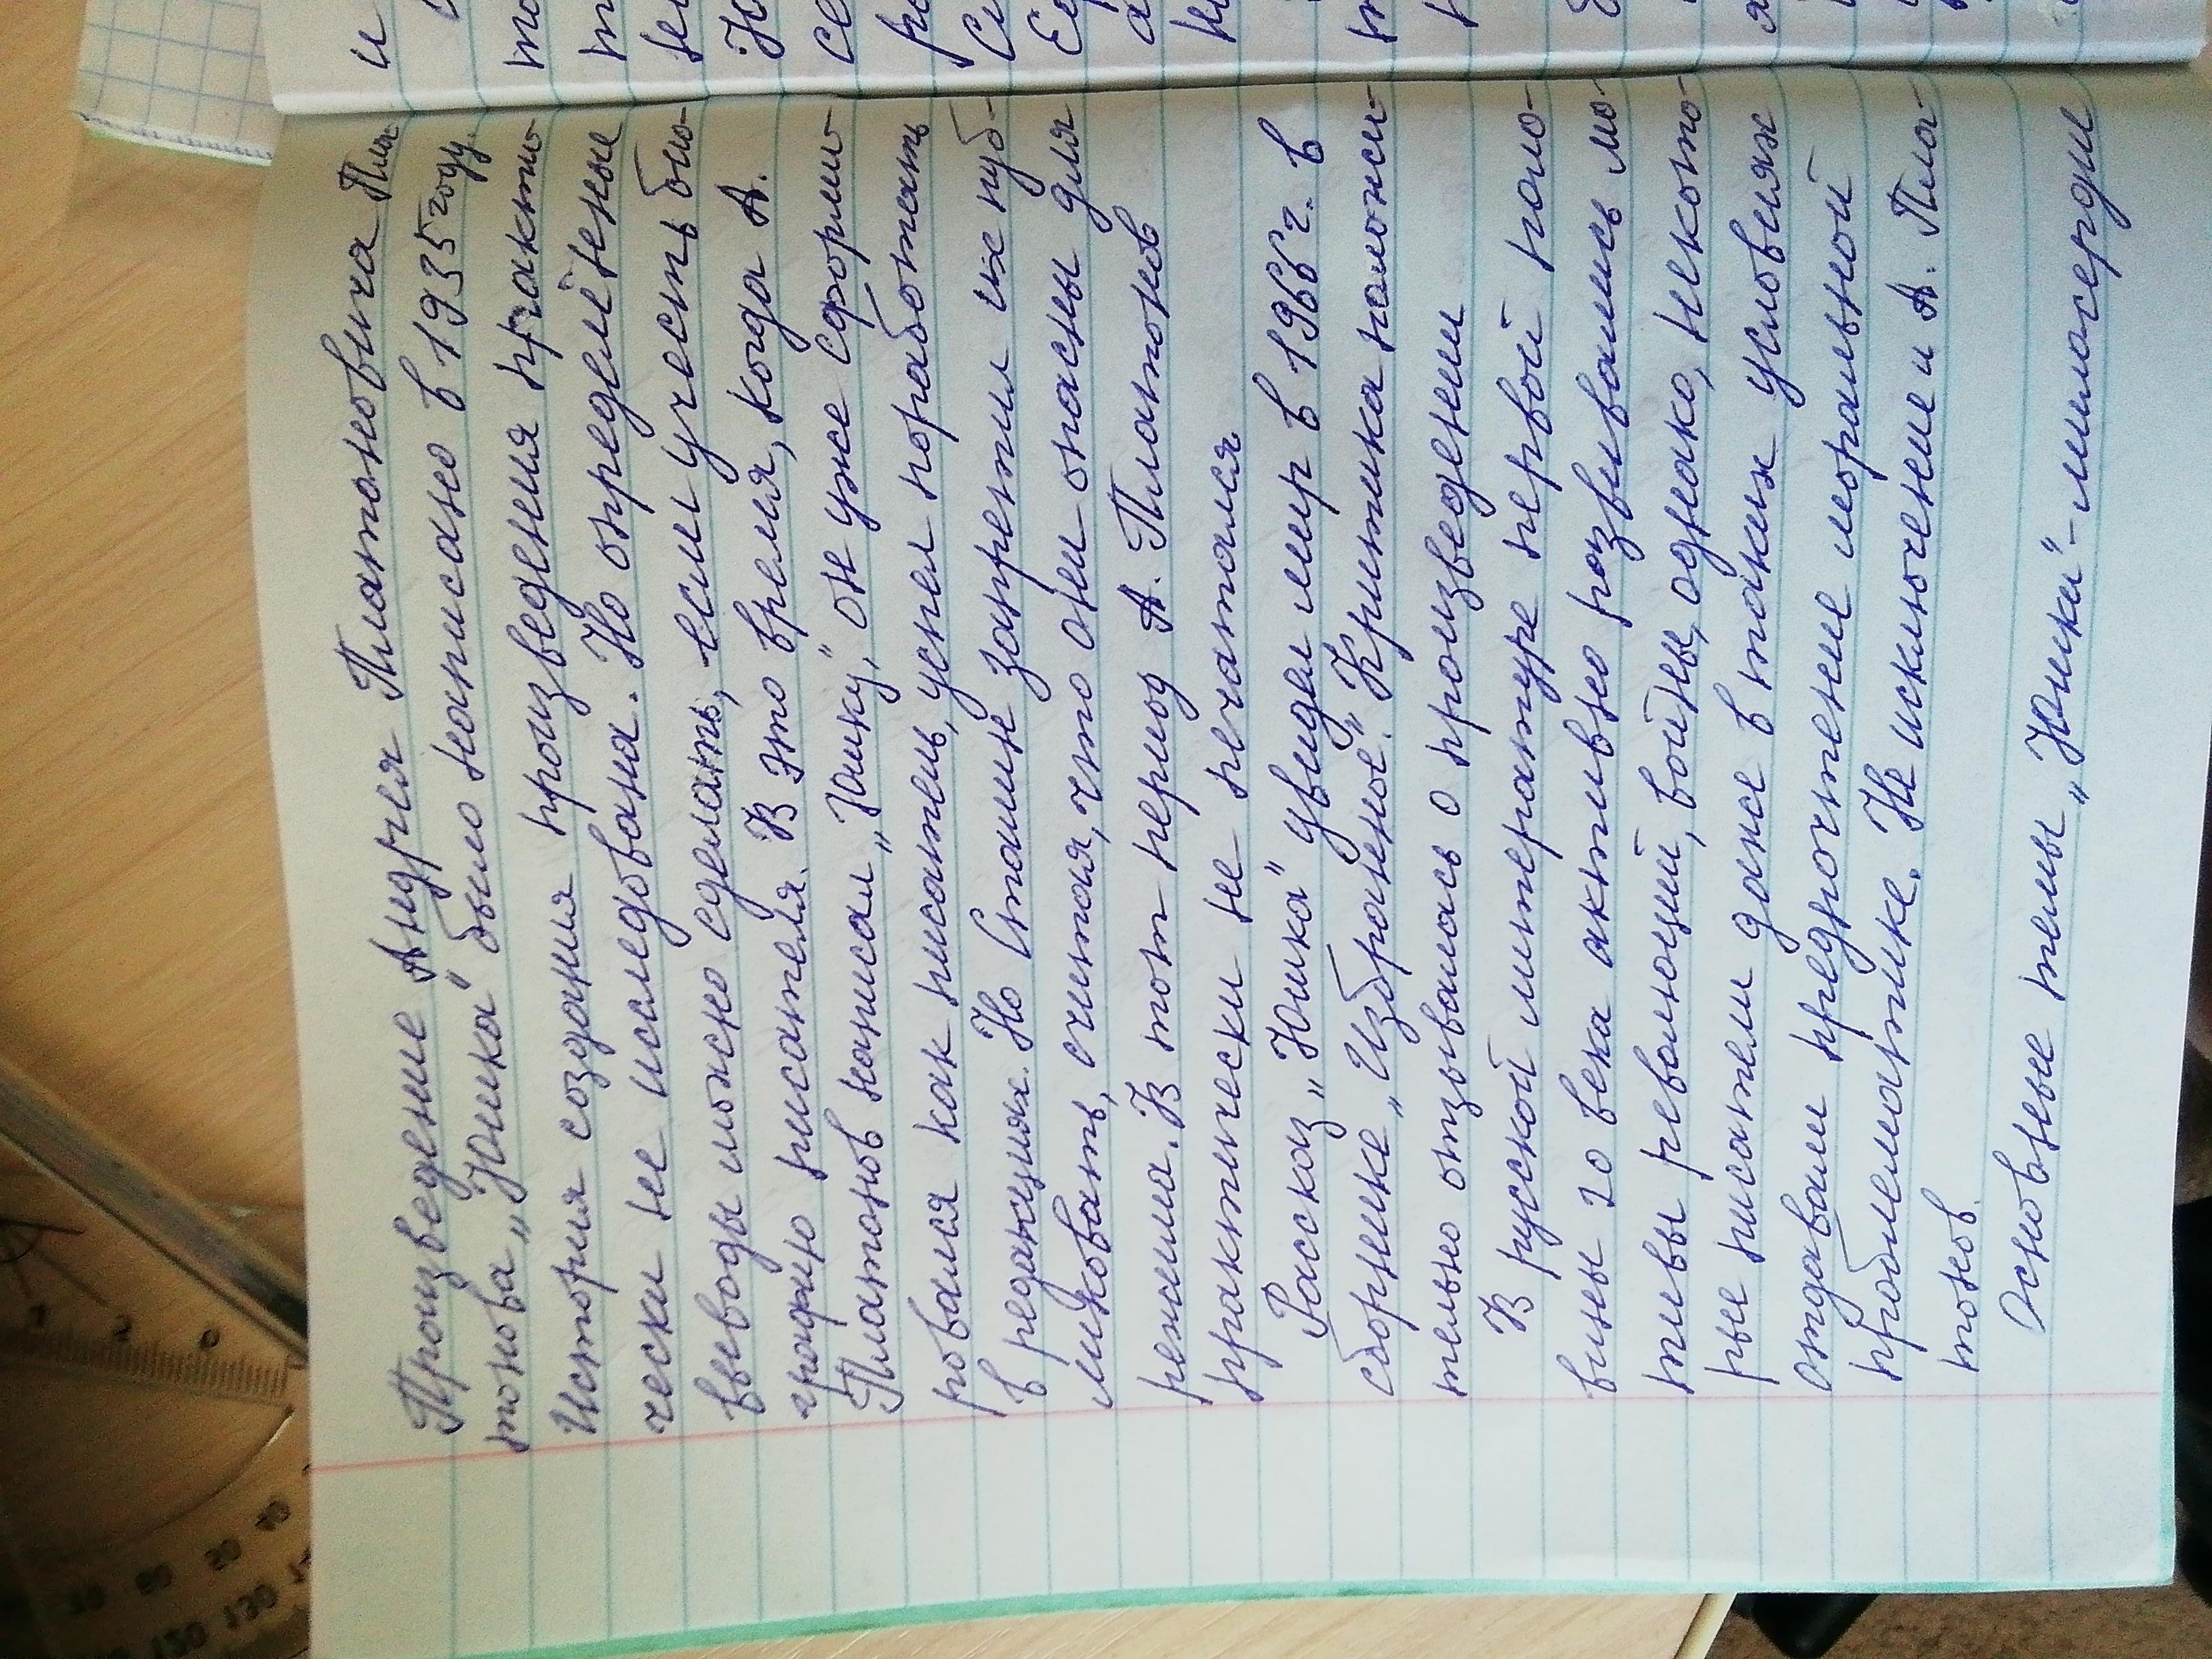 Произведение Андрея Платоновича Пла-
тонова „Юшка" было написано в 1935 году.
История создания произведения практи-
чески не иследована. Но определённые
выводы можно сделать, если учесть био-
графию писателя. В это время, когда А.
Платонов написал „Юшку", он уже сформи-
ровался как писатель, успел поработать
в редакциях. Но Сталин запретил их пуб-
ликовать, считая, что они опасны для
режима. В тот период А. Платонов
практически не печатался
Рассказ „Юшка" увидел мир в 1966 г. в
сборнике „Избранное". Критика положи-
тельно отзывалась о произведении
В русской литературе первой поло-
вины 20 века активно развивались мо-
тивы революций, войны, однако, некото-
рые писатели даже в таких условиях
отдавали предпочтение моральной
проблематике. Не исключение и А. Пла-
тонов.
Основные темы „Юшки" - милосерди
и